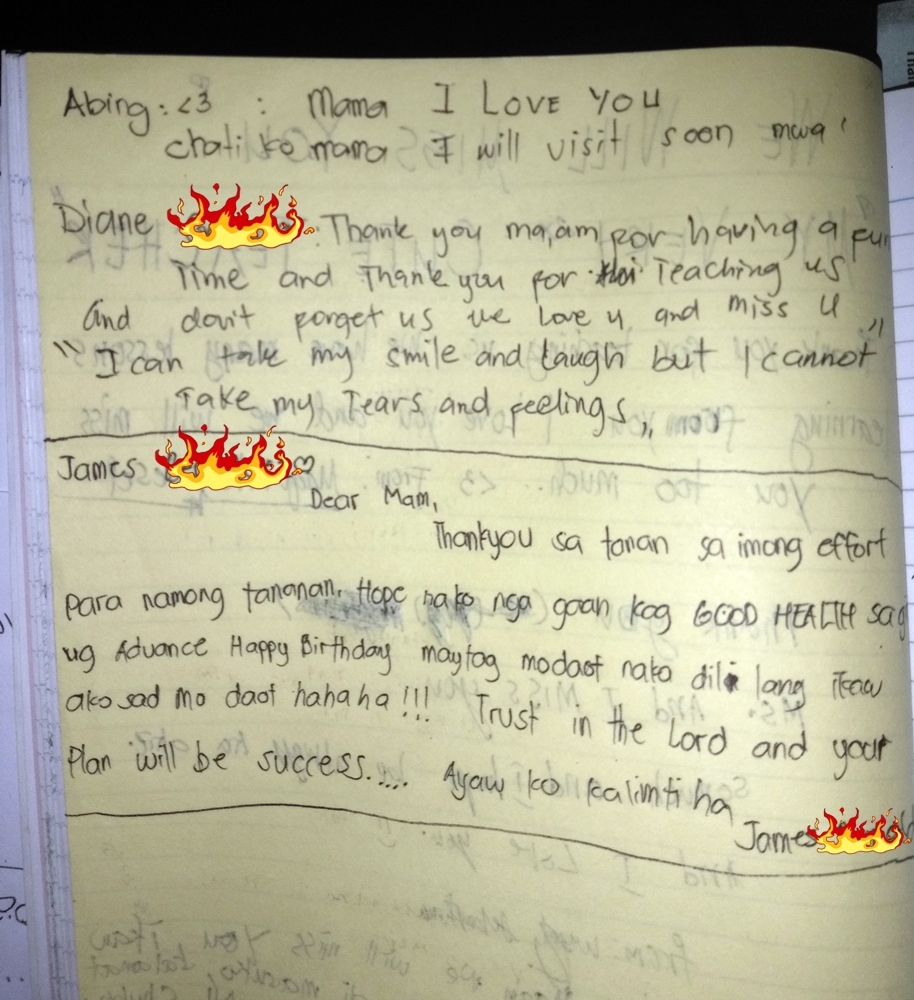 Abing : <3 : Mama I LOVE YOU
chati ko mama I will visit soon mwa'
Diane : Thank you ma,am por having a fun
Time and Thank you for Teaching us
And don't porget us we love u and miss u
"I can take my smile and laugh but I cannot
Take my Tears and feelings,,
James ♡
Dear Mam,
Thankyou sa tanan sa imong effort
para namong tananan. Hope nako nga gaan kag GOOD HEALTH sag
ug Advance Happy Birthday maytag modaot nako dili lang ikaw
ako sad mo daot hahaha!!! Trust in the Lord and your
Plan will be success..... Ayaw ko kalimti ha
James